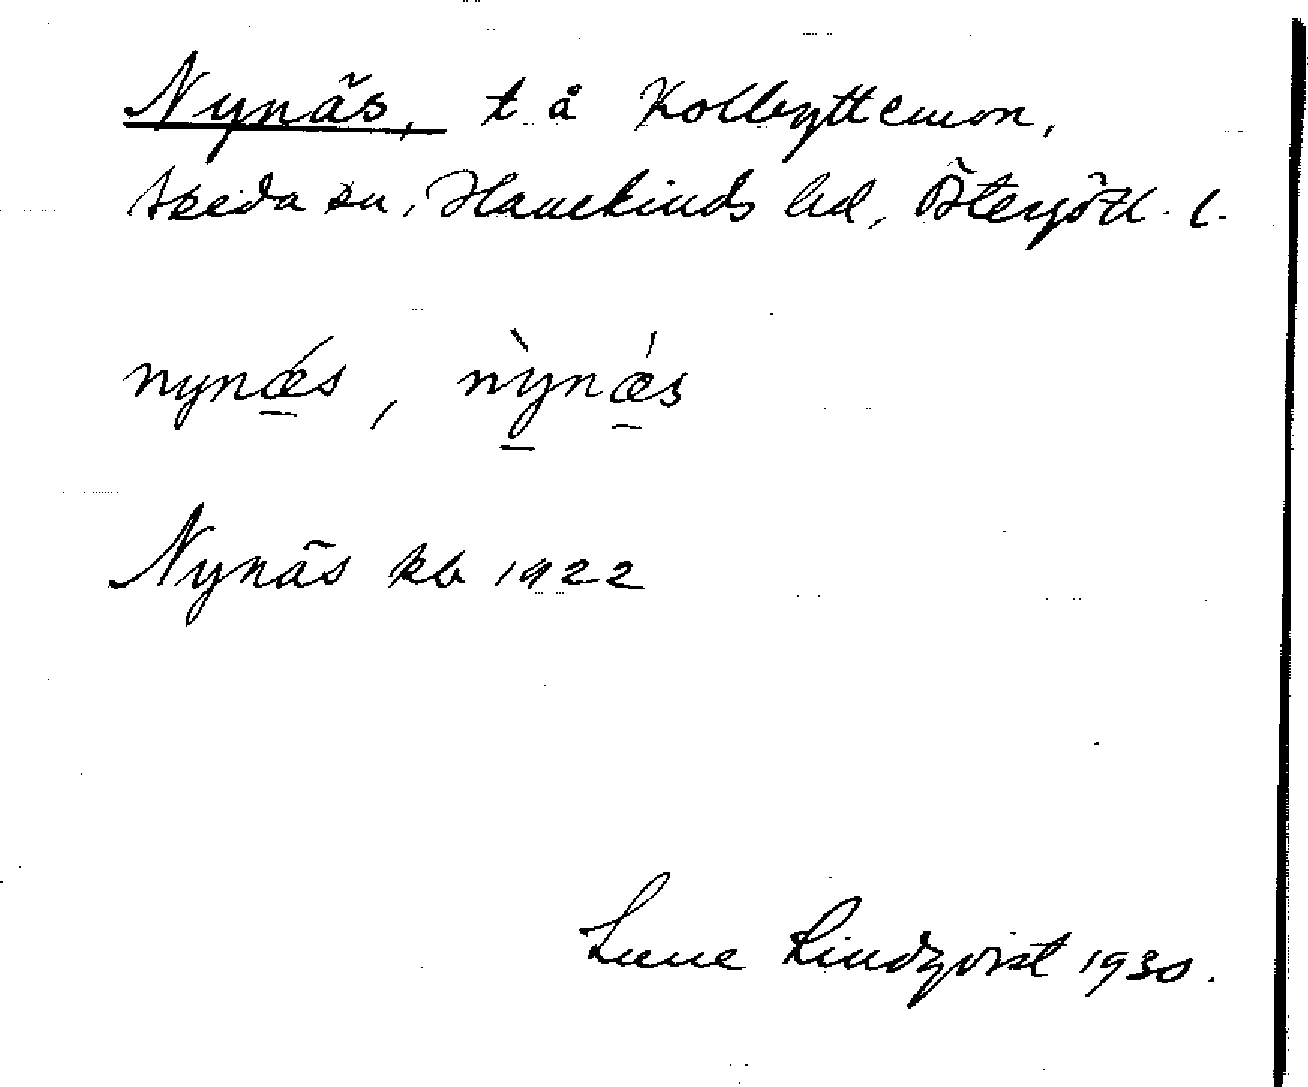 Nynäs, t å Kolbyttemon,
Skeda sn, Hanekinds hd, Östergötl. l.
nynǽs, nỳnǽs
Nynäs kb 1922
Sune Lindqvist 1930.